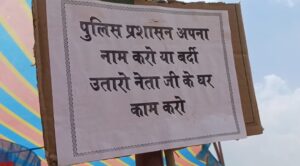 पुलिस प्रशासन अपना
नाम करो या बर्दी
उतारो नेता जी के घर
काम करो